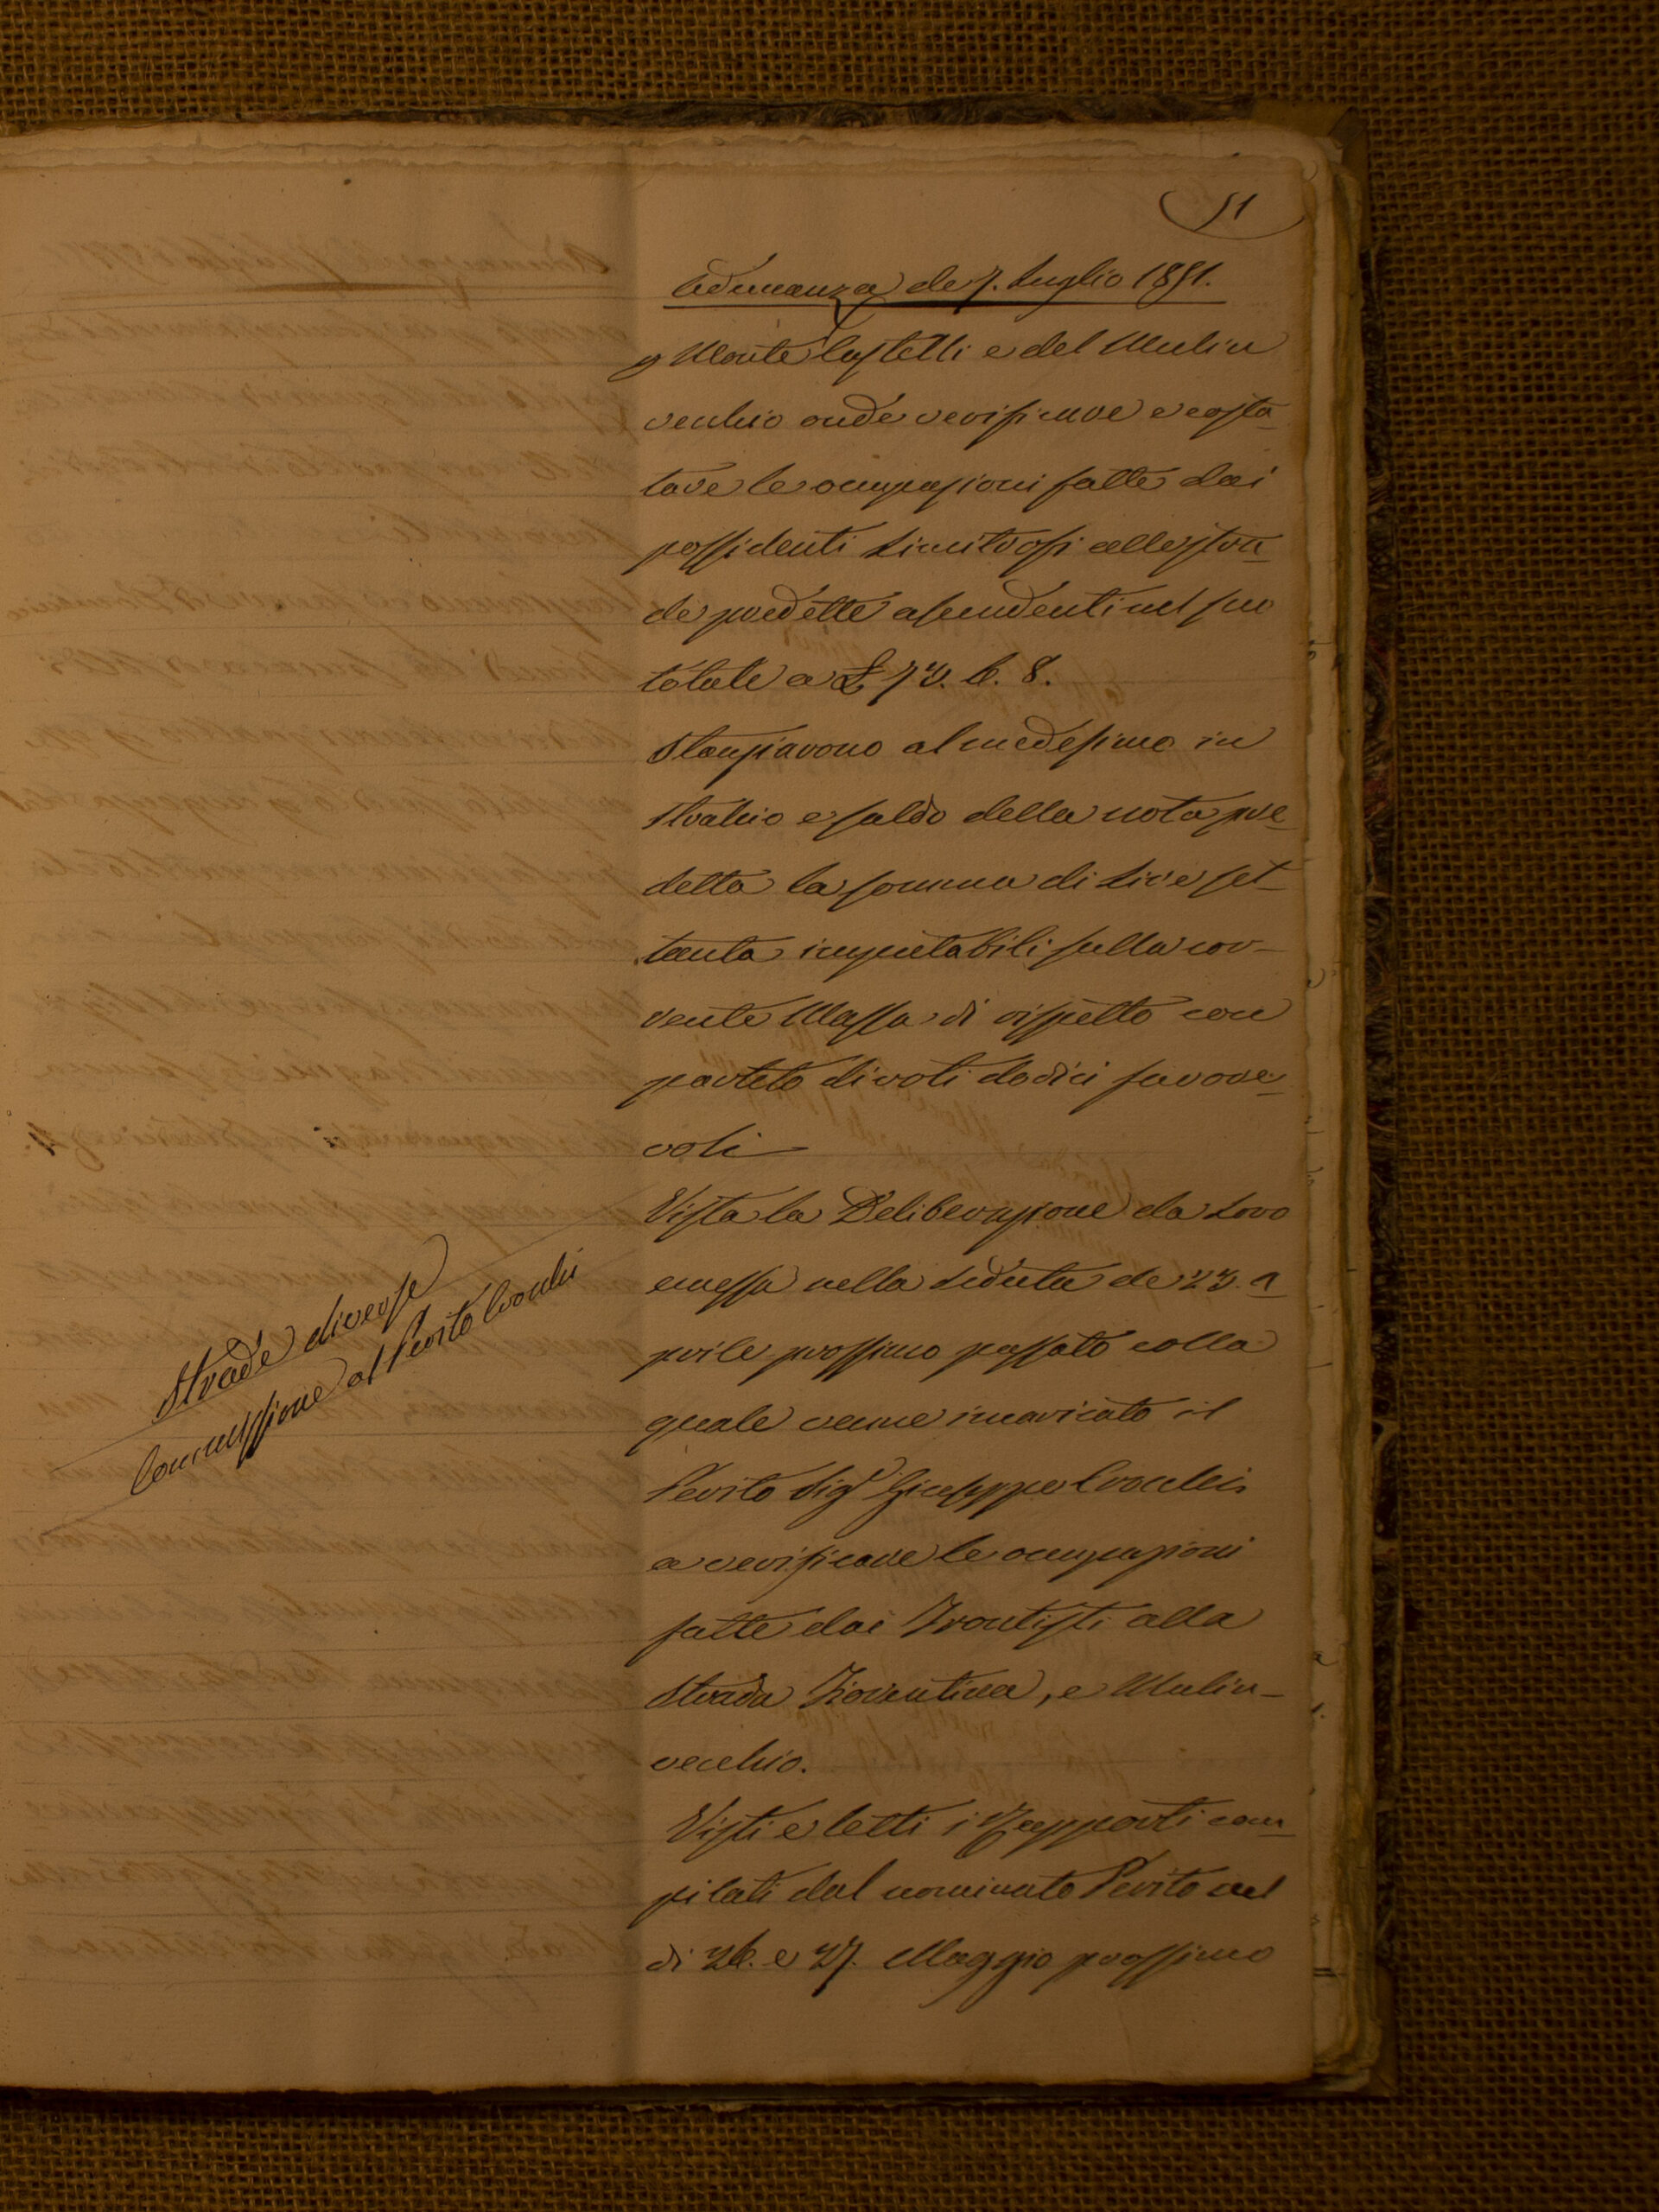 51
Adunanza de 7. Luglio 1851.
Monte Castelli e del Mulin
vecchio onde verificare e costa
tare le occupazioni fatte dai
possidenti Limitrofi alle stra
de predette ascendenti nel suo
totale a £ 73. 6. 8.
Stanziarono al medesimo in
stralcio e saldo della nota pre
detta la somma di Lire set
tanta imputabili sulla cor-
rente Massa di rispetto con
partito di voti dodici favore
voli
Strade diverse
Commissione al Perito Crocchi
Vista la Deliberazione da Loro
emessa nella Seduta de 23. A
prile prossimo passato colla
quale venne incaricato il
Perito Sigr Giuseppe Crocchi
a verificare le occupazioni
fatte dai Frontisti alla
Strada Fiorentina, e Mulin-
vecchio.
Visti e letti i Rapporti com
pilati dal nominato Perito nel
di 26. e 27. Maggio prossimo